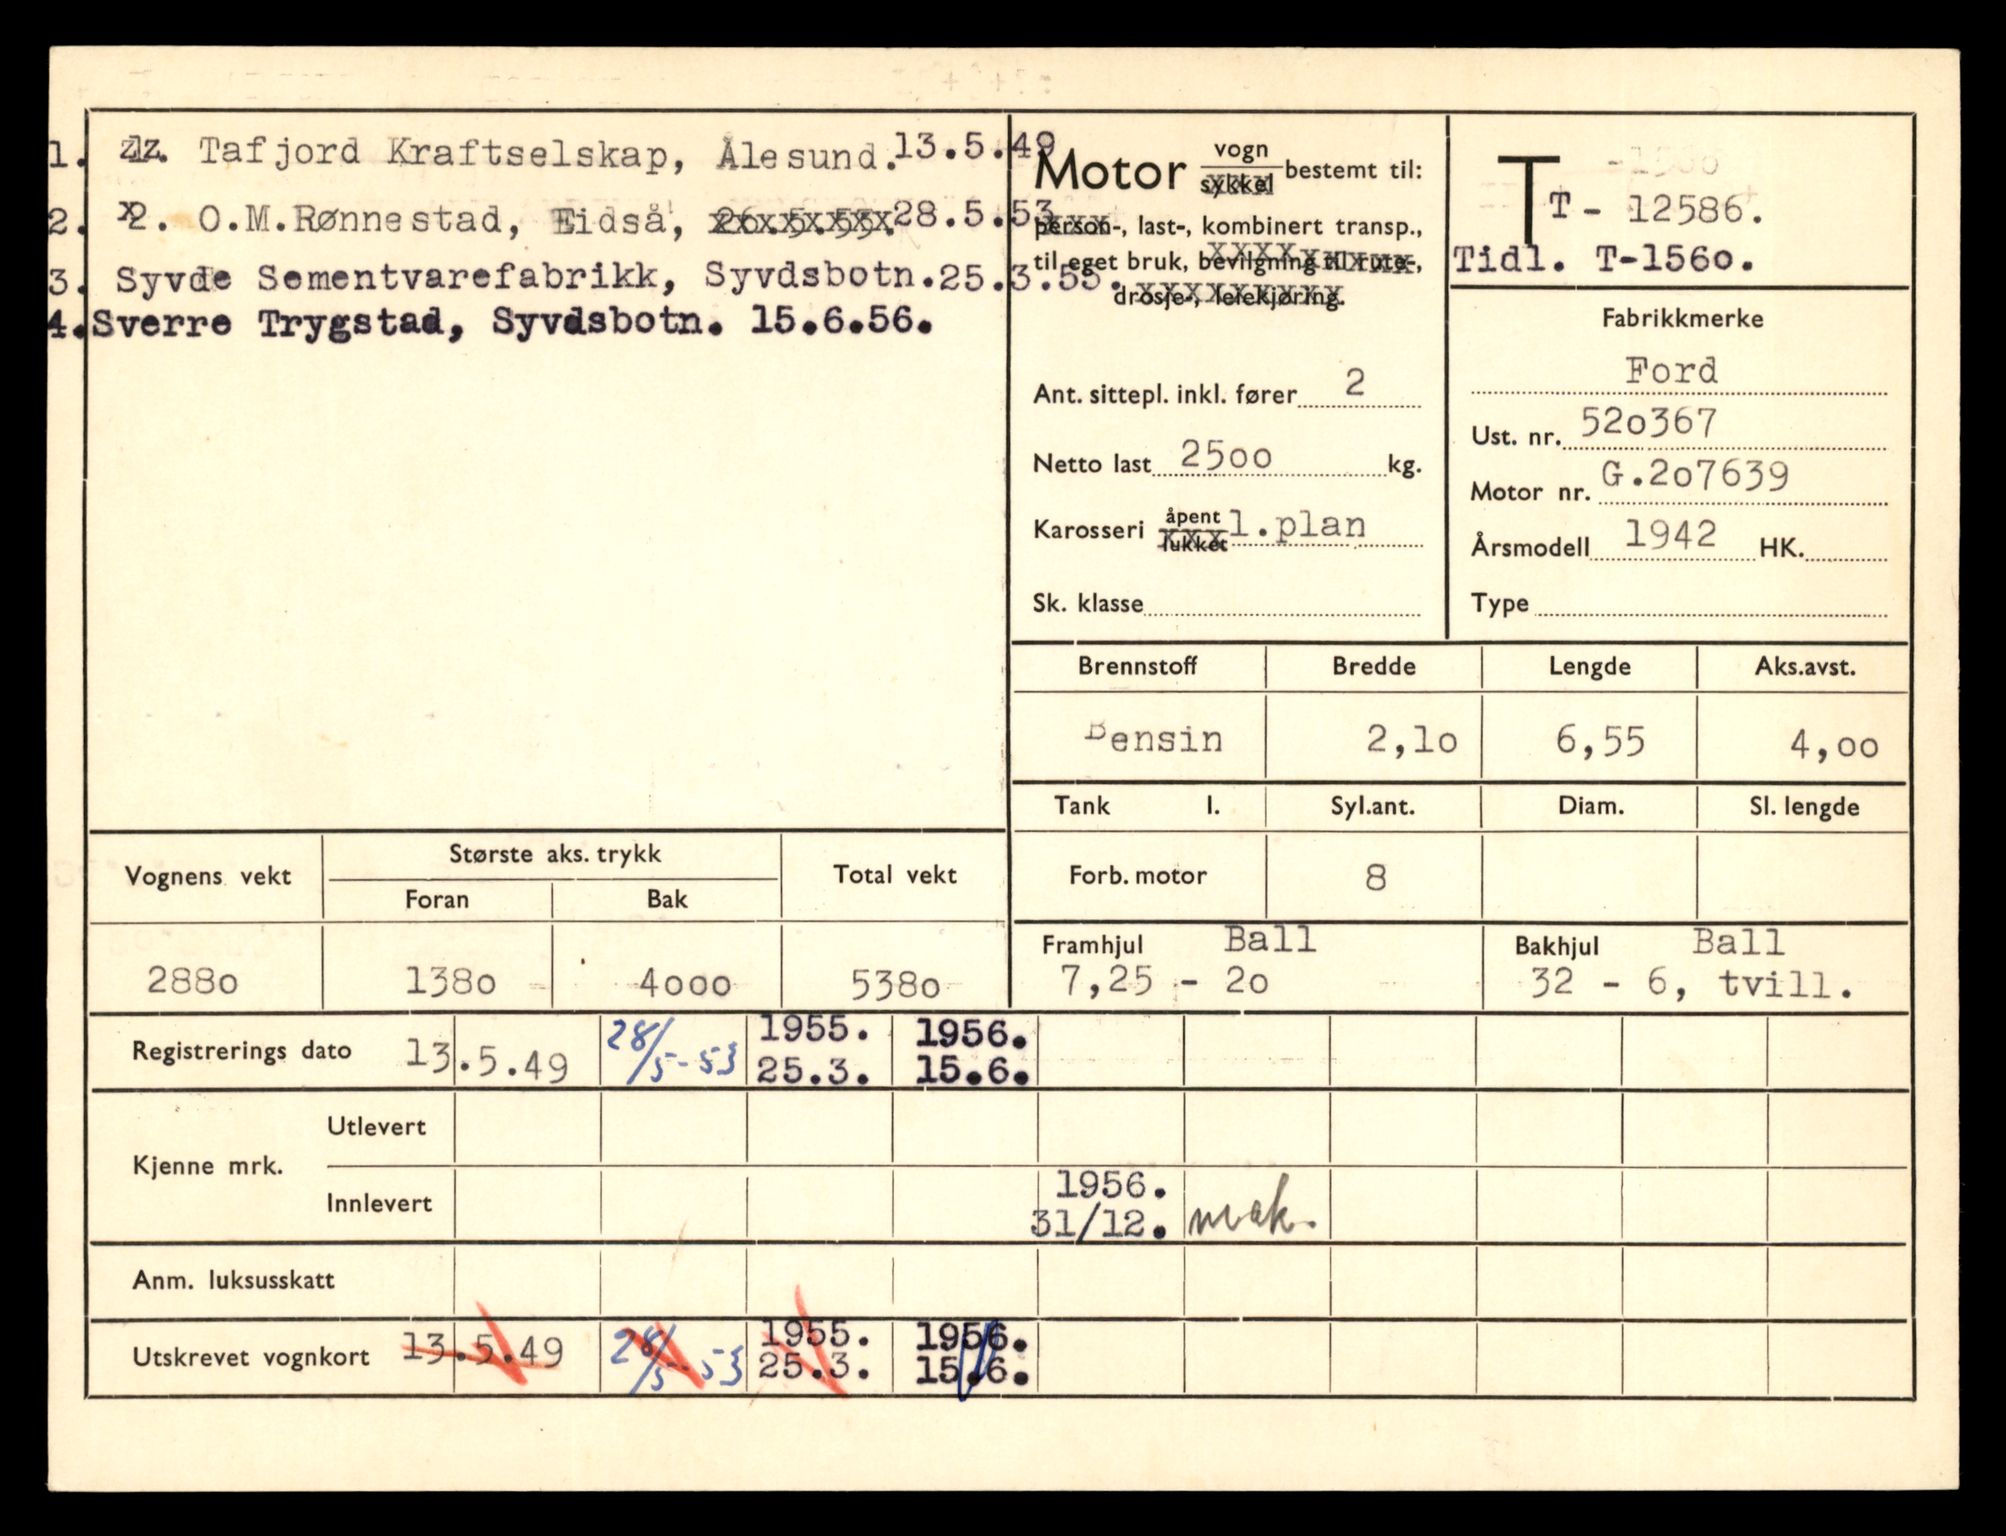 1. Tafjord Kraftselskap, Ålesund. 13.5.49
2. 2. O.M.Rønnestad, Eidså, 26.5.53. 28.5.53
3. Syvde Sementvarefabrikk, Syvdsbotn. 25.3.55.
4. Sverre Trygstad, Syvdsbotn. 15.6.56.
Motor vogn sykkel bestemt til:
person-, last-, kombinert transp.,
til eget bruk, bevilgning til rute-,
drosje-, leiekjøring.
Ant. sittepl. inkl. fører 2
Netto last 2500 kg.
Karosseri åpent lukket l.plan
Sk. klasse
T T - 12586.
Tidl. T-1560.
Fabrikkmerke
Ford
Ust. nr. 520367
Motor nr. G.207639
Årsmodell 1942 HK.
Type
Brennstoff Bredde Lengde Aks.avst.
Bensin 2,10 6,55 4,00
Tank l. Syl.ant. Diam. Sl. lengde
Forb. motor 8
Framhjul Ball
7,25 - 20
Bakhjul Ball
32 - 6, tvill.
Vognens vekt Største aks. trykk Total vekt
Foran Bak
2880 1380 4000 5380
Registrerings dato 13.5.49 28/5-53 1955. 25.3. 1956. 15.6.
Kjenne mrk.
Utlevert
Innlevert 1956. 31/12. mak.
Anm. luksusskatt
Utskrevet vognkort 13.5.49 28/5-53 1955. 25.3. 1956. 15.6.